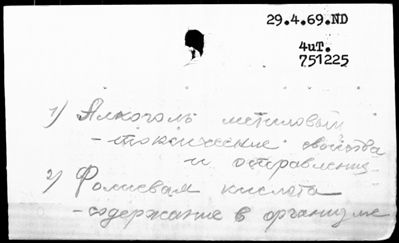 29.4.69.ND
4uT.
751225
1) Алкоголь метиловый
- токсические свойства
и отравление
2) Фолиевая кислота
- содержание в организме